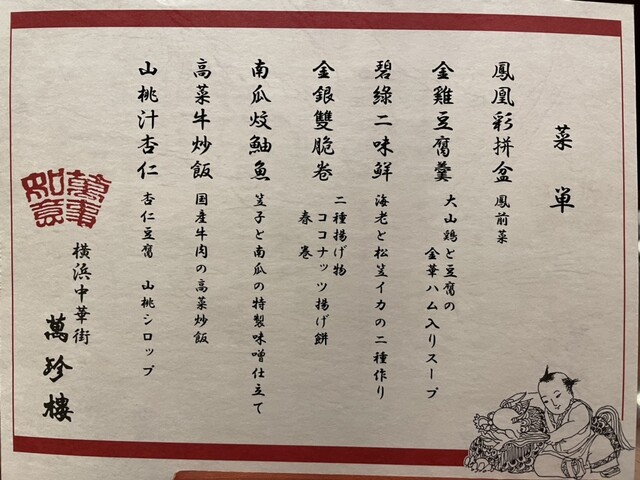 菜単
鳳凰彩拼盆 鳳前菜
金雞豆腐羹 大山鶏と豆腐の
金華ハム入りスープ
碧綠二味鮮 海老と松笠イカの二種作り
金銀雙脆卷 二種揚げ物
ココナッツ揚げ餅
春巻
南瓜炆鮋魚 笠子と南瓜の特製味噌仕立て
高菜牛炒飯 国産牛肉の高菜炒飯
山桃汁杏仁 杏仁豆腐 山桃シロップ
萬事
如意
横浜中華街
萬珍樓